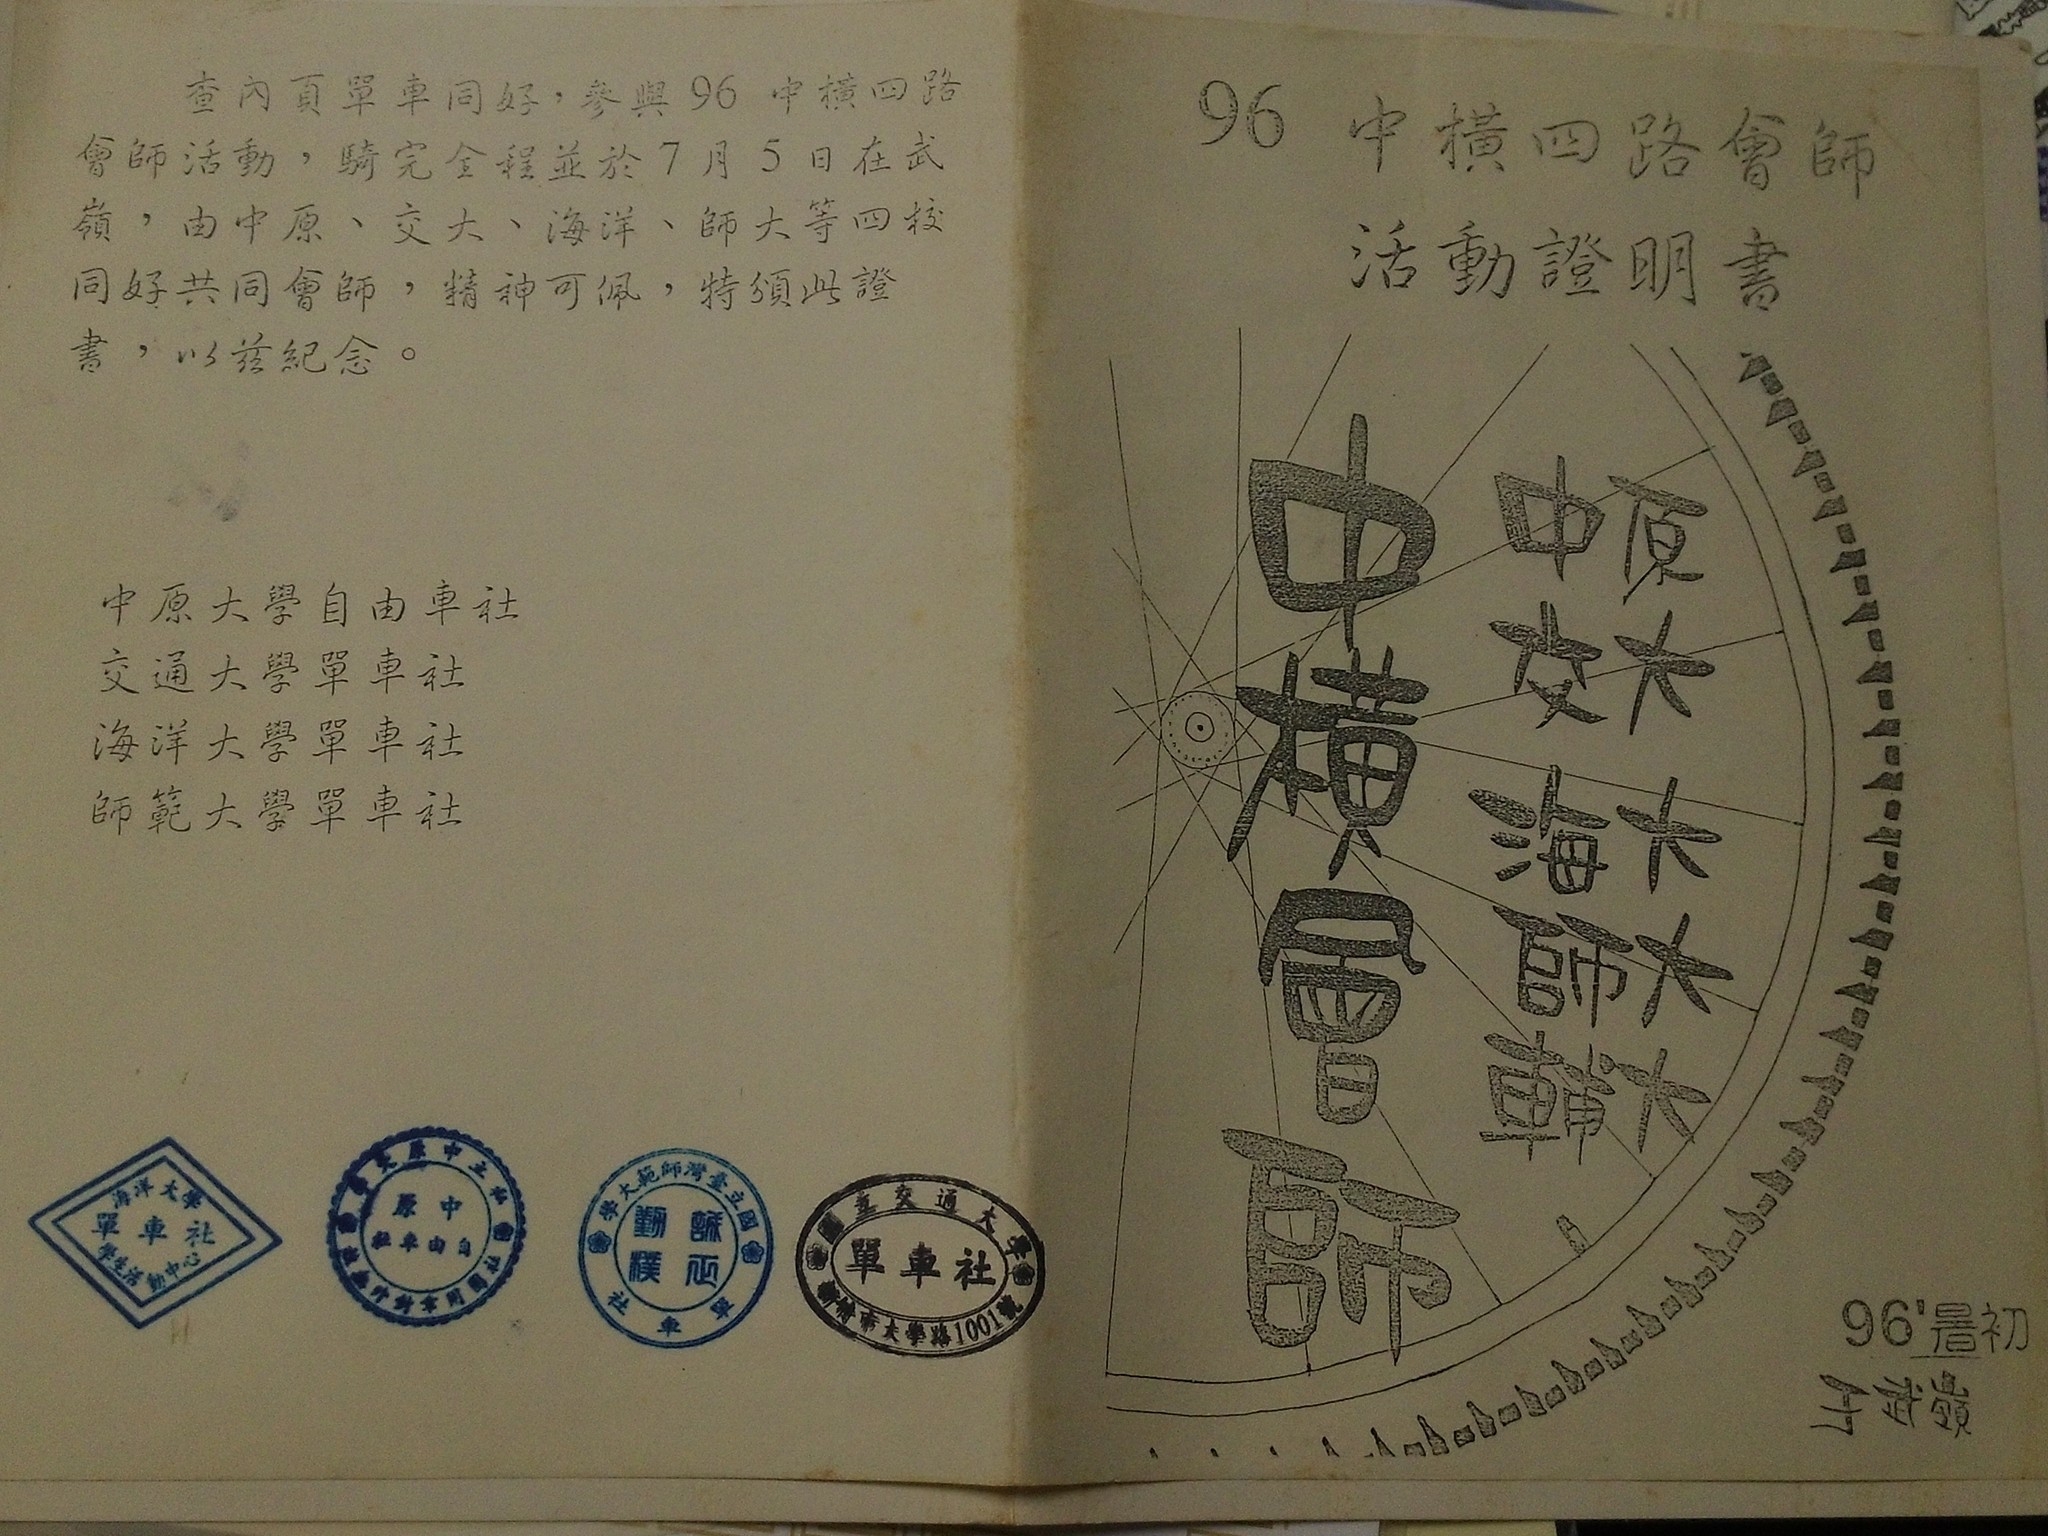 查內頁單車同好，參與 96 中橫四路
會師活動，騎完全程並於 7 月 5 日在武
嶺，由中原、交大、海洋、師大等四校
同好共同會師，精神可佩，特頒此證
書，以茲紀念。
中原大學自由車社
交通大學單車社
海洋大學單車社
師範大學單車社
海洋大學
單車社
學生活動中心
私立中原大學
中原
自由車社
社團用章對外無效
國立臺灣師範大學
誠正
勤樸
單車社
國立交通大學
單車社
新竹市大學路1001號
96 中橫四路會師
活動證明書
中橫會師
中原
交大
海大
師大
輔大
96'暑初
于武嶺